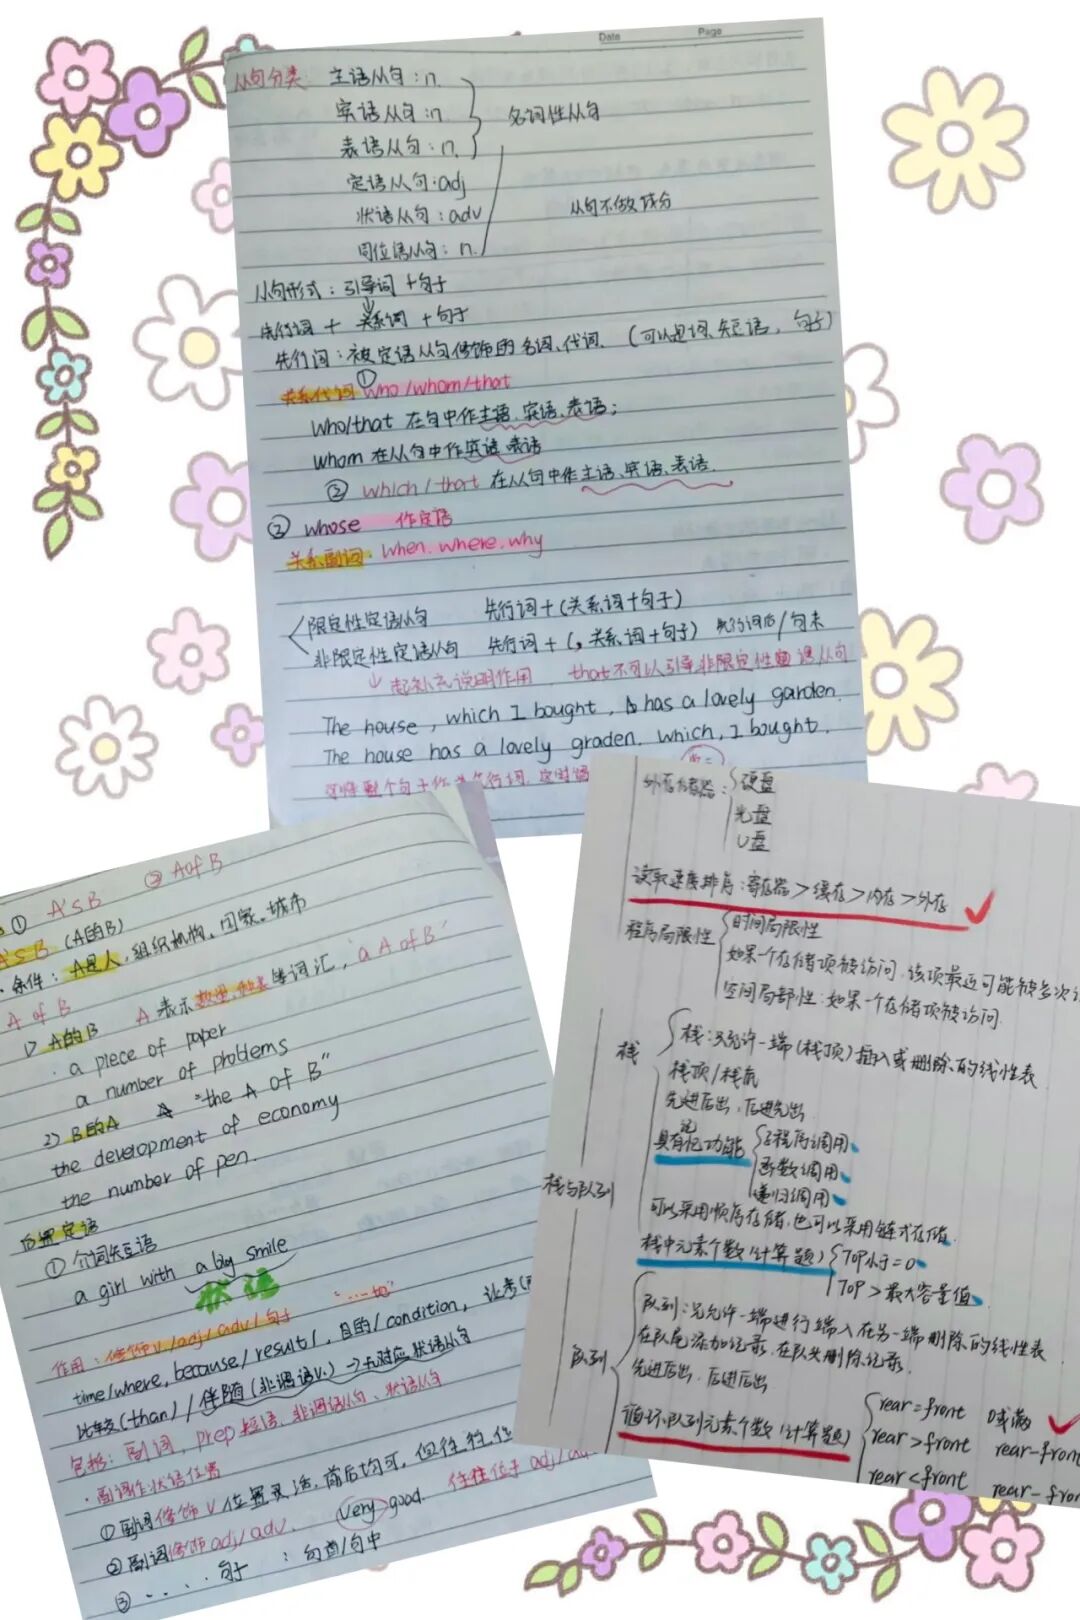 Date Page
从句分类 主语从句:n.
宾语从句:n.
表语从句:n.
名词性从句
定语从句:adj
状语从句:adv
从句不做成分
同位语从句:n.
从句形式:引导词+句子
先行词 + 关系词 +句子
先行词:被定语从句修饰的名词、代词. (可以是词、短语,句子)
关系代词 ① who/whom/that
who/that 在句中作主语、宾语、表语;
whom 在从句中作宾语、表语
② which/that 在从句中作主语、宾语、表语.
③ whose 作定语
关系副词. when. where. why
限定性定语从句 先行词+(关系词+句子)
非限定性定语从句 先行词+(, 关系词+句子) 先行词后/句末
↓ 起补充说明作用 that不可以引导非限定性定语从句
The house, which I bought, has a lovely garden.
The house has a lovely graden. which, I bought.
① A'SB ② A of B
A'S B (A的B)
·条件:A是人,组织机构、国家、城市
A of B
1) A的B A 表示数量、种类等词汇, "a A of B"
· a piece of paper
a number of problems
2) B的A "the A of B"
the development of economy
the number of pen.
后置定语
① 介词短语
a girl with a big smile
状语
作用:修饰v/adj/adv/句子
time/where, because/result/, 目的/condition, 让步
比较(than)/伴随(非谓语v.)→无对应状语从句
包括:副词, prep短语、非谓语从句、状语从句
·副词作状语位置
①副词修饰v 位置灵活,前后均可,但往往位
②副词修饰adj/adv. very good. 往往位于 adj/
③ .... 句子 :句首/句中
外存储器:硬盘
光盘
U盘
读取速度排序:寄存器>缓存>内存>外存
程序局限性 时间局限性
如果一个存储项被访问,该项最近可能被多次
空间局部性:如果一个存储项被访问.
栈与队列
栈 栈:只允许一端(栈顶)插入或删除的线性表
栈顶/栈底
先进后出,后进先出
具有记忆功能 子程序调用
函数调用
递归调用
可以采用顺序存储,也可以采用链式存储.
栈中元素个数(计算题) TOP小于=0
TOP>最大容量值
队列 队列:只允许一端进行插入在另一端删除的线性表
在队尾添加记录,在队头删除记录.
先进后出,后进后出
循环队列元素个数(计算题) rear=front 0或满
rear>front rear-front
rear<front rear-front